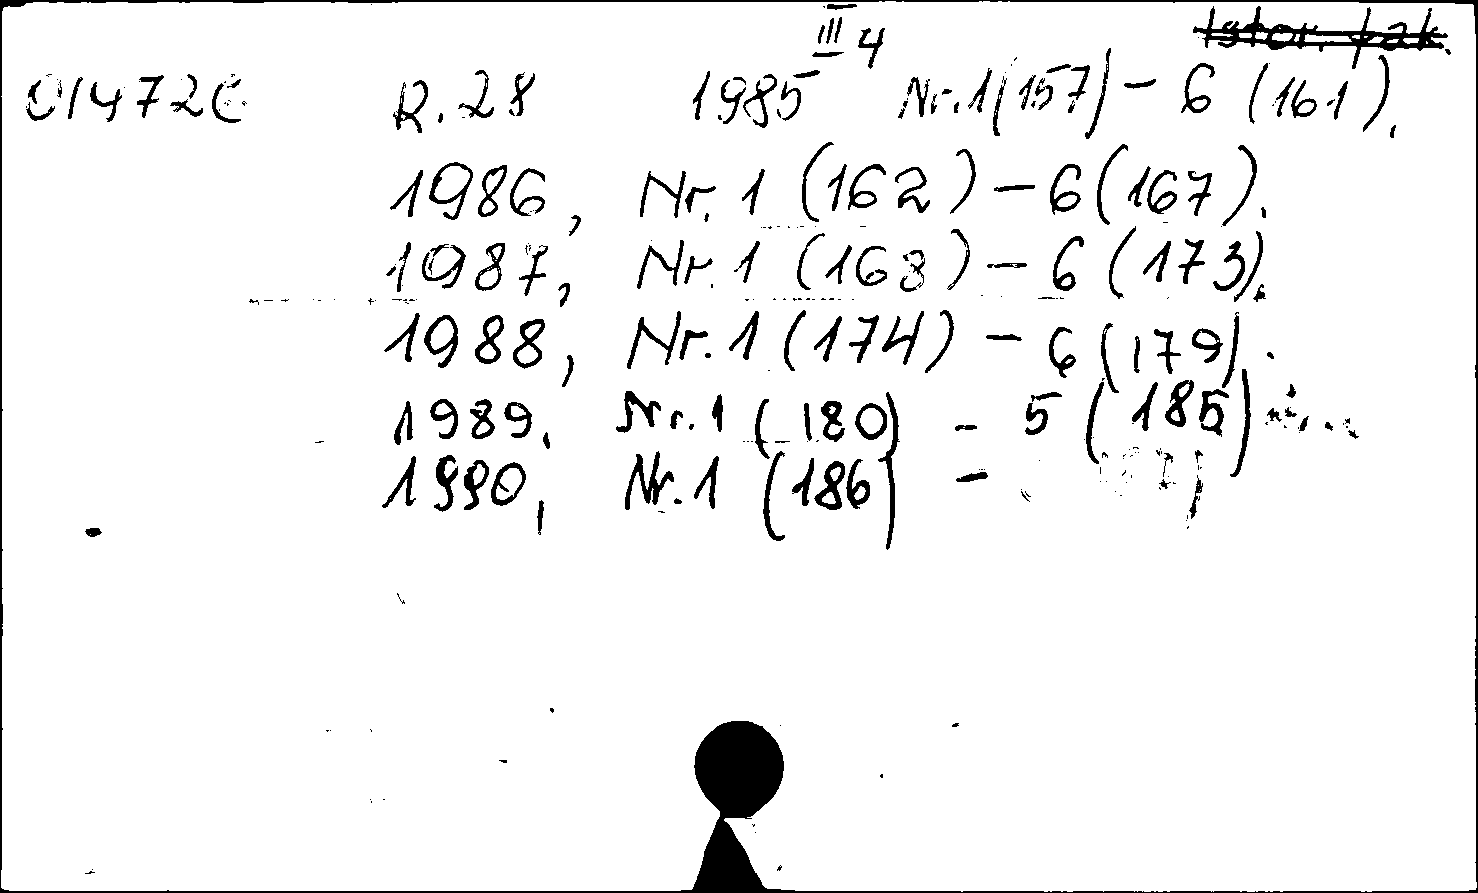 III 4 Istor. fak.
01472C R. 28 1985 Nr. 1 (157) - 6 (161).
1986, Nr. 1 (162) - 6 (167).
1987, Nr. 1 (168) - 6 (173).
1988, Nr. 1 (174) - 6 (179).
1989, Nr. 1 (180) - 5 (185)
1990, Nr. 1 (186) -